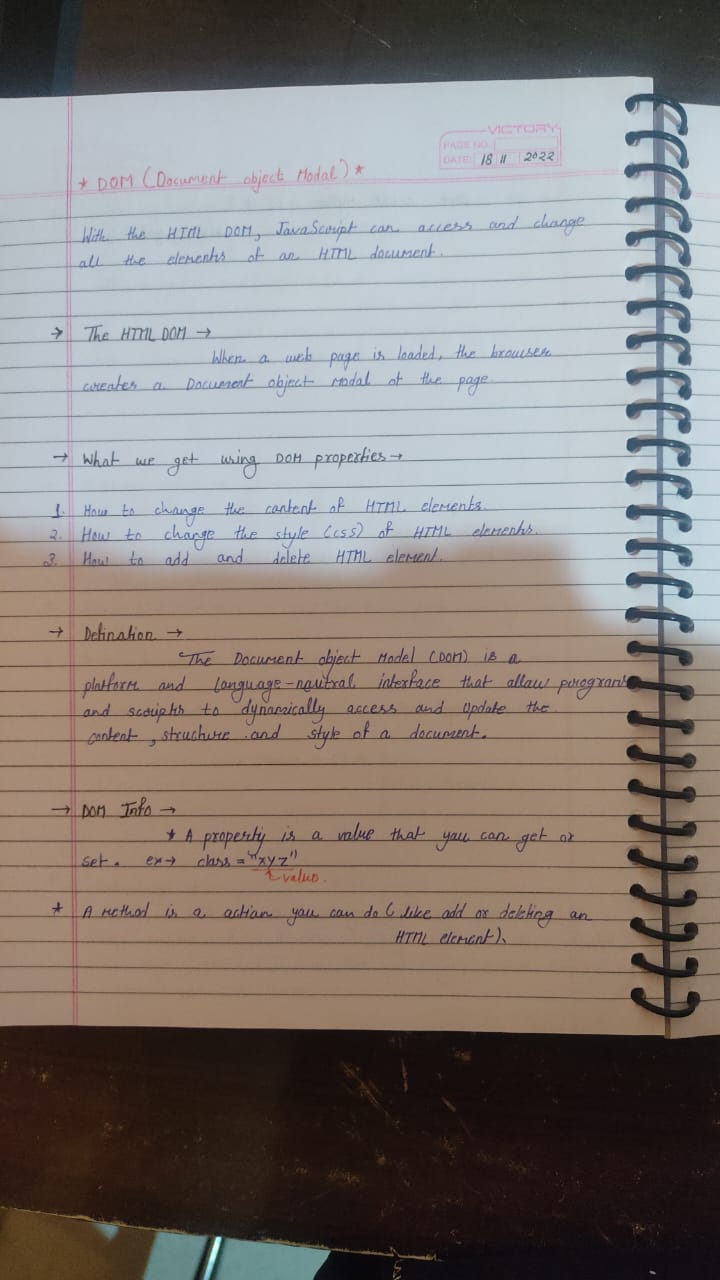 VICTORY
PAGE NO.
DATE: 18 11 2022
* DOM (Document object Modal) *
With the HTML DOM, JavaScript can access and change
all the elements of an HTML document.
→ The HTML DOM →
When a web page is loaded, the browser
creates a Document object Modal of the page
→ What we get using DOM properties →
1. How to change the content of HTML elements.
2. How to change the style (css) of HTML elements.
3. How to add and delete HTML element.
→ Defination →
The Document object Model (DOM) is a
platform and language-nautral interface that allow programs
and scripts to dynamically access and update the
content, structure and style of a document.
→ DOM Info →
* A property is a value that you can get or
set. ex→ class = "xyz"
value.
* A method is a action you can do (like add or deleting an
HTML element).